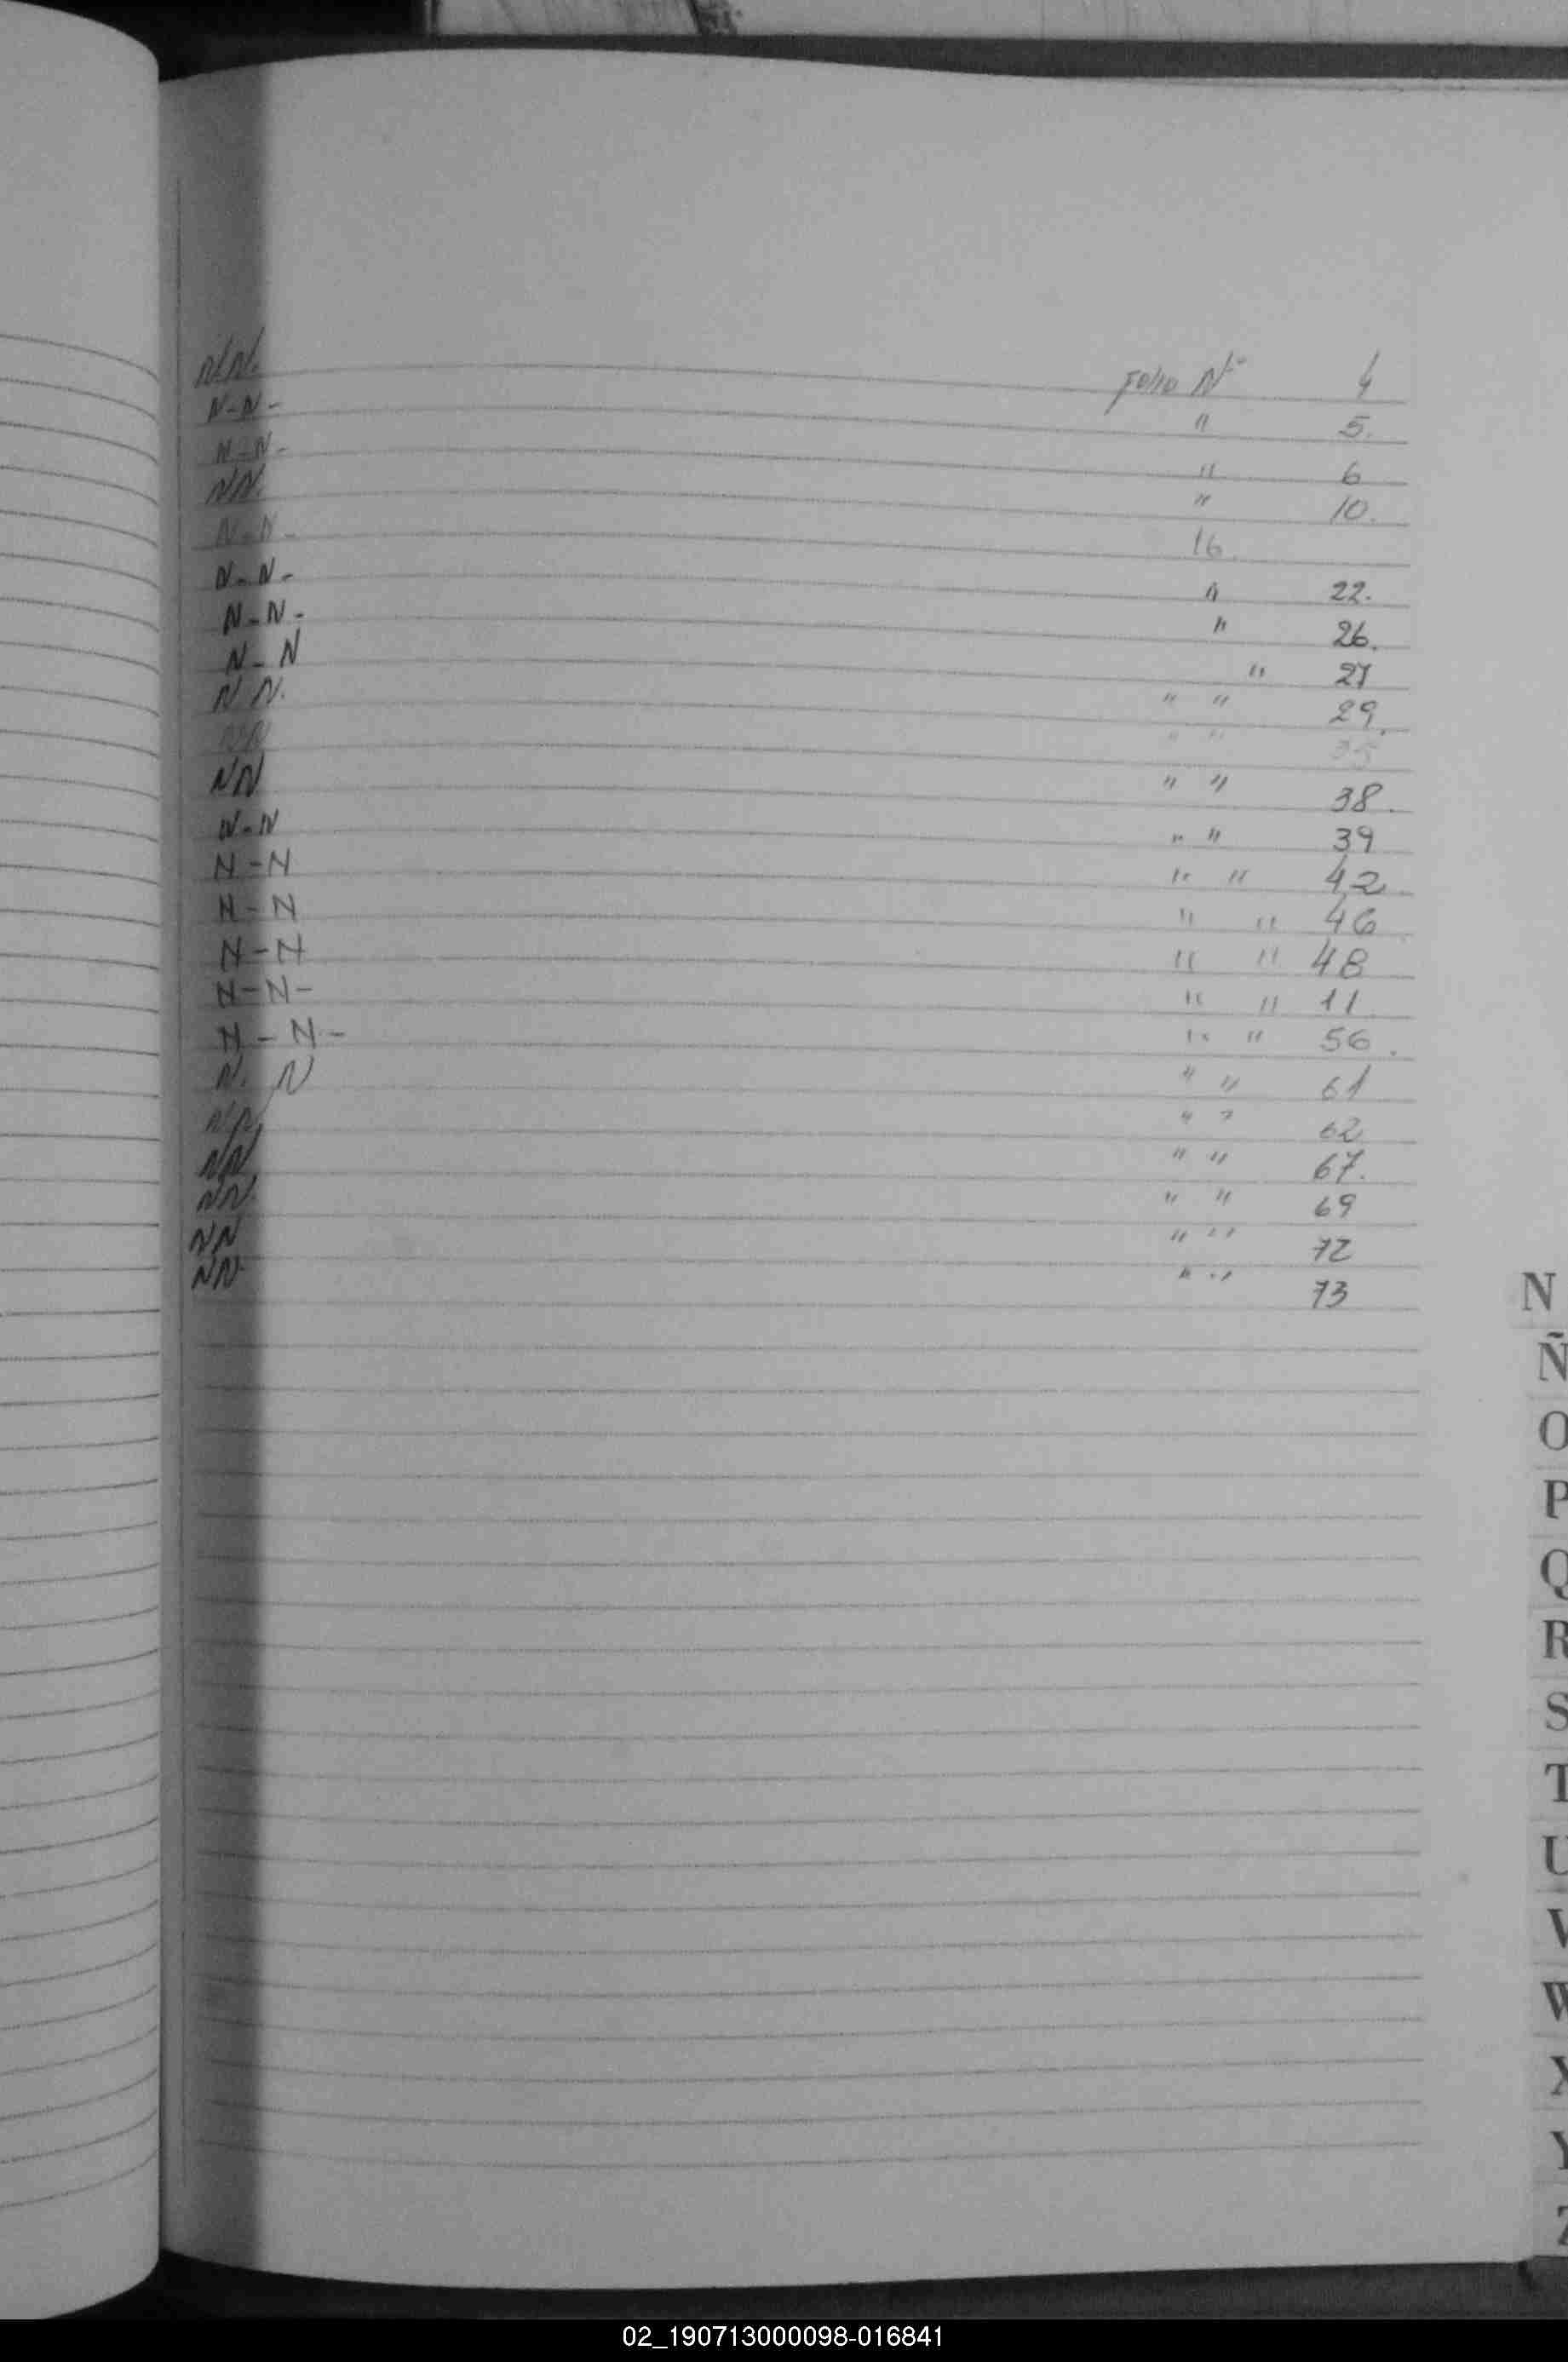 N.N. Folio Nº 4
N-N- " 5.
N-N- " 6
NN. " 10.
N-N- 16.
N-N- " 22.
N-N- " 26.
N-N " 27
N N. " " 29.
NN " " 35
NN " " 38.
N-N " " 39
N-N " " 42
N-N " " 46
N-N " " 48
N-N- " " 11
N-N- " " 56.
N. N " " 61
NN " " 62
NN " " 67.
NN. " " 69
NN " " 72
NN " " 73
N
Ñ
O
P
Q
R
S
T
U
V
W
X
Y
Z
02_190713000098-016841